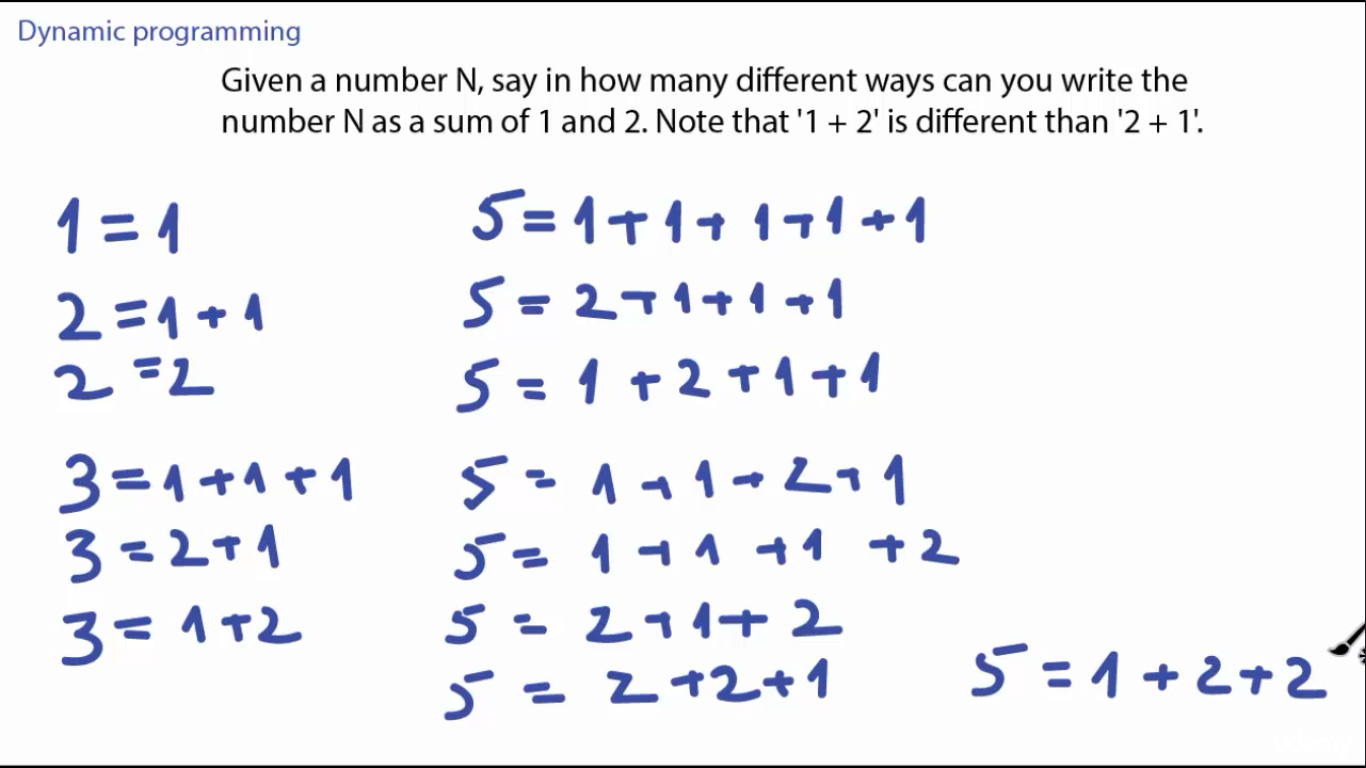 Dynamic programming
Given a number N, say in how many different ways can you write the
number N as a sum of 1 and 2. Note that '1 + 2' is different than '2 + 1'.
1 = 1
2 = 1 + 1
2 = 2
3 = 1 + 1 + 1
3 = 2 + 1
3 = 1 + 2
5 = 1 + 1 + 1 + 1 + 1
5 = 2 + 1 + 1 + 1
5 = 1 + 2 + 1 + 1
5 = 1 + 1 + 2 + 1
5 = 1 + 1 + 1 + 2
5 = 2 + 1 + 2
5 = 2 + 2 + 1
5 = 1 + 2 + 2
udemy